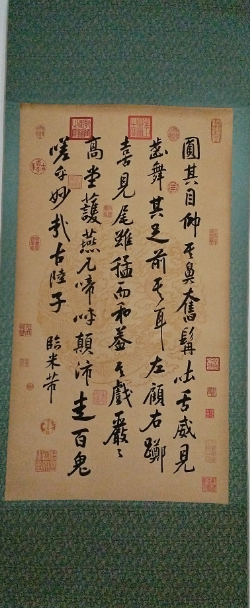 圓其目仰其鼻奮髯吐舌威見
齒舞其足前其耳左顧右躑
喜見尾雖猛而和蓋其戲嚴々
高堂護燕几啼呼顛沛走百鬼
嗟乎妙哉古陸子
臨米芾